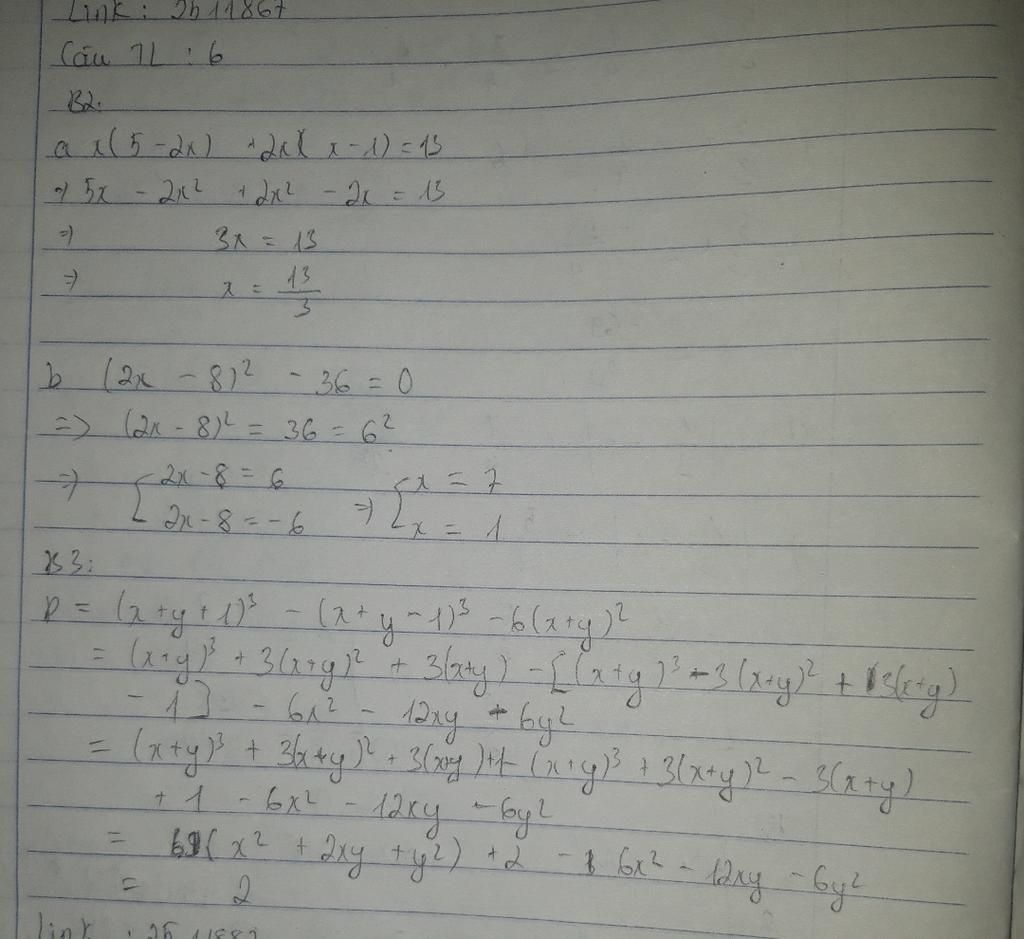 Link : 2511867
Câu TL : 6
B2.
a x(5 - 2x) + 2x(x - 1) = 13
=> 5x - 2x² + 2x² - 2x = 13
=> 3x = 13
=> x = 13/3
b (2x - 8)² - 36 = 0
=> (2x - 8)² = 36 = 6²
=> [2x - 8 = 6 => [x = 7
[2x - 8 = -6 [x = 1
B3:
P = (x + y + 1)³ - (x + y - 1)³ - 6(x + y)²
= (x+y)³ + 3(x+y)² + 3(x+y) - [(x+y)³ - 3(x+y)² + 3(x+y)
- 1] - 6x² - 12xy - 6y²
= (x+y)³ + 3(x+y)² + 3(x+y) + 1 - (x+y)³ + 3(x+y)² - 3(x+y)
+ 1 - 6x² - 12xy - 6y²
= 6(x² + 2xy + y²) + 2 - 6x² - 12xy - 6y²
= 2
link :